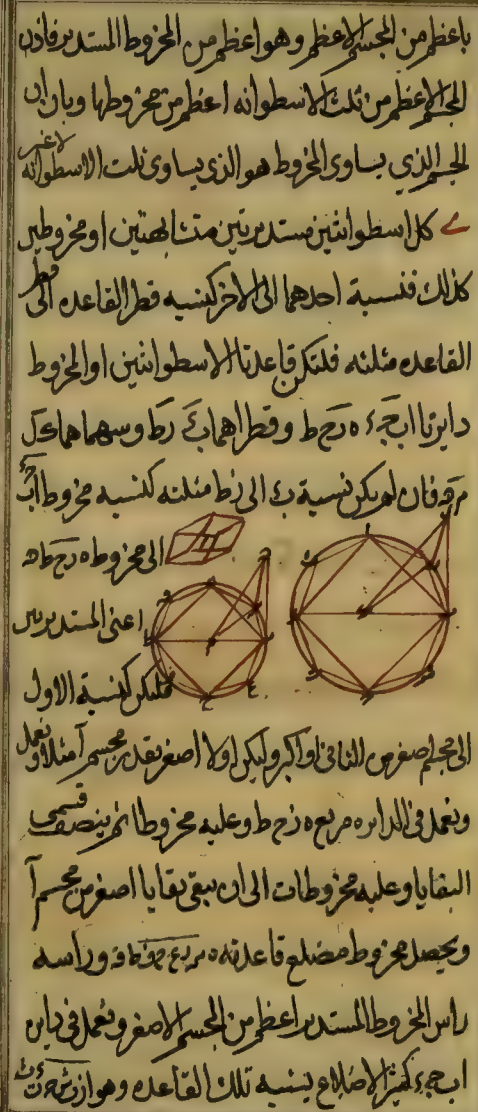 باعظم من المجسم الاعظم وهو اعظم من المخروط المستدير فاذن
المجسم الاعظم من ثلث الاسطوانه اعظم من مخروطها وبان ان
المجسم الذي يساوى المخروط هو الذى يساوى ثلث الاسطوانه لاغير
ے كل اسطوانتين مستديرتين متشابهتين او مخروطين
كذلك فنسبة احدهما الى الاخر كنسبه قطر القاعده الى قطر
القاعده مثلثه فلتكن قاعدتا الاسطوانتين او المخروط
دايرتا ا ب ج ء ه ر ح ط وقطراهما ب ء ر ط وسهماهما ك ل
م ن فان لم يكن نسبة ب ء الى ر ط مثلثه كنسبه مخروط ا ب ج ء
الى مخروط ه ر ح ط
اعنى المستديرين
فليكن كنسبة الاول
الى مجسم اصغر من الثانى او اكبر وليكن اولا اصغر بقدر مجسم آ مثلا
ونعمل فى الدايره مربع ه ر ح ط وعليه مخروطا ثم ينصف قسى
البقايا وعليه مخروطات الى ان يبقى بقايا اصغر من مجسم آ
ويحصل مخروط مضلع قاعدته وراسه
راس المخروط المستدير اعظم من المجسم الاصغر ونعمل فى دايره
ا ب ج ء كثير الاضلاع يشبه تلك القاعده وهو